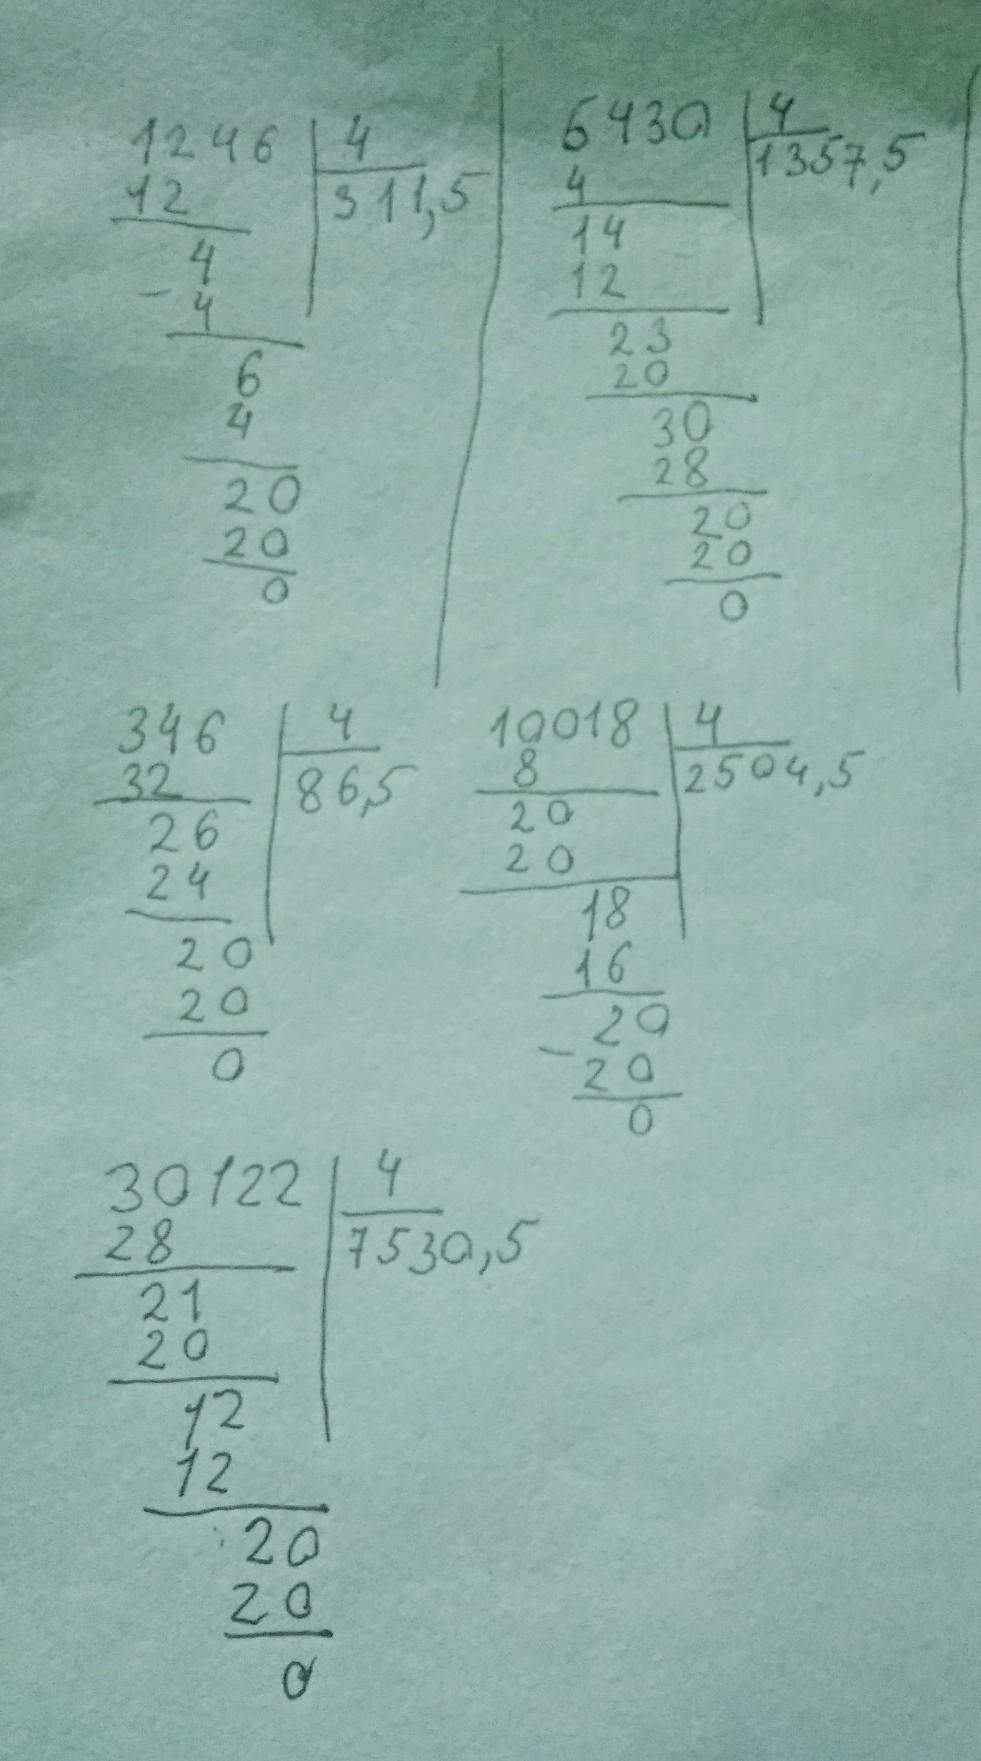 1246 4
12 311,5
4
- 4
6
4
20
20
0
5430 4
4 1357,5
14
12
23
20
30
28
20
20
0
346 4
32 86,5
26
24
20
20
0
10018 4
8 2504,5
20
20
18
16
20
- 20
0
30122 4
28 7530,5
21
20
12
12
20
20
0